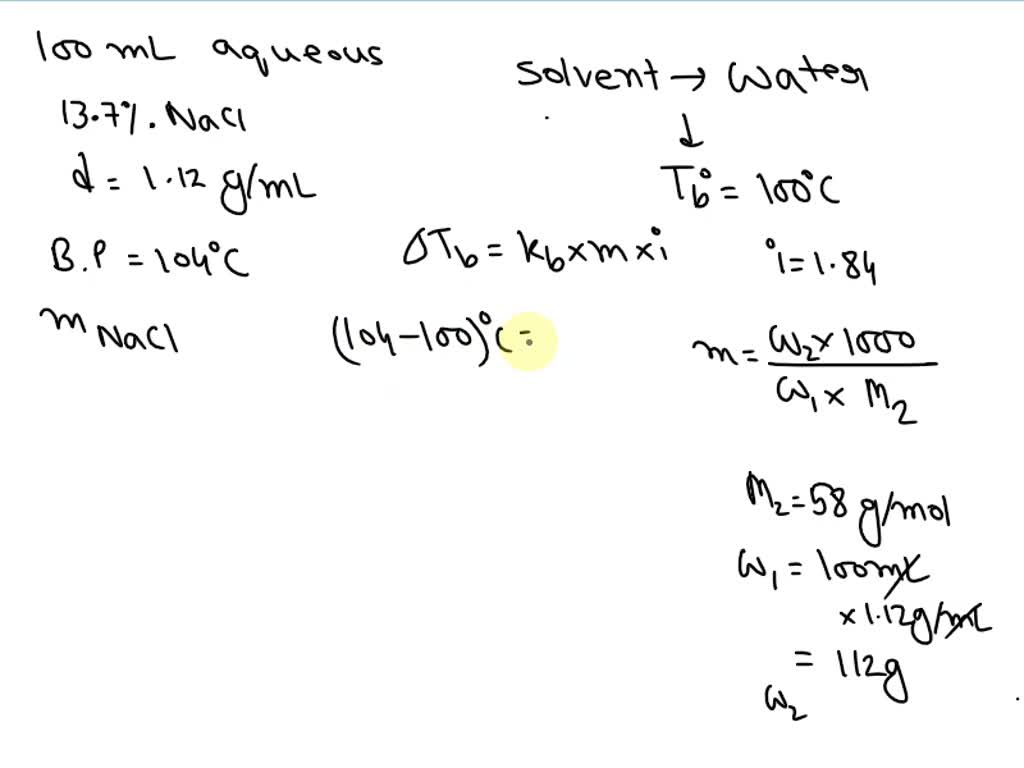 100 mL aqueous
13.7%. NaCl
d = 1.12 g/mL
B.P = 104°C
m NaCl
Solvent → Water
↓
Tb° = 100°C
ΔTb = kb × m × i
i = 1.84
(104-100)°C =
m = w2 × 1000
w1 × M2
M2 = 58 g/mol
w1 = 100mL
× 1.12g/mL
= 112g
w2